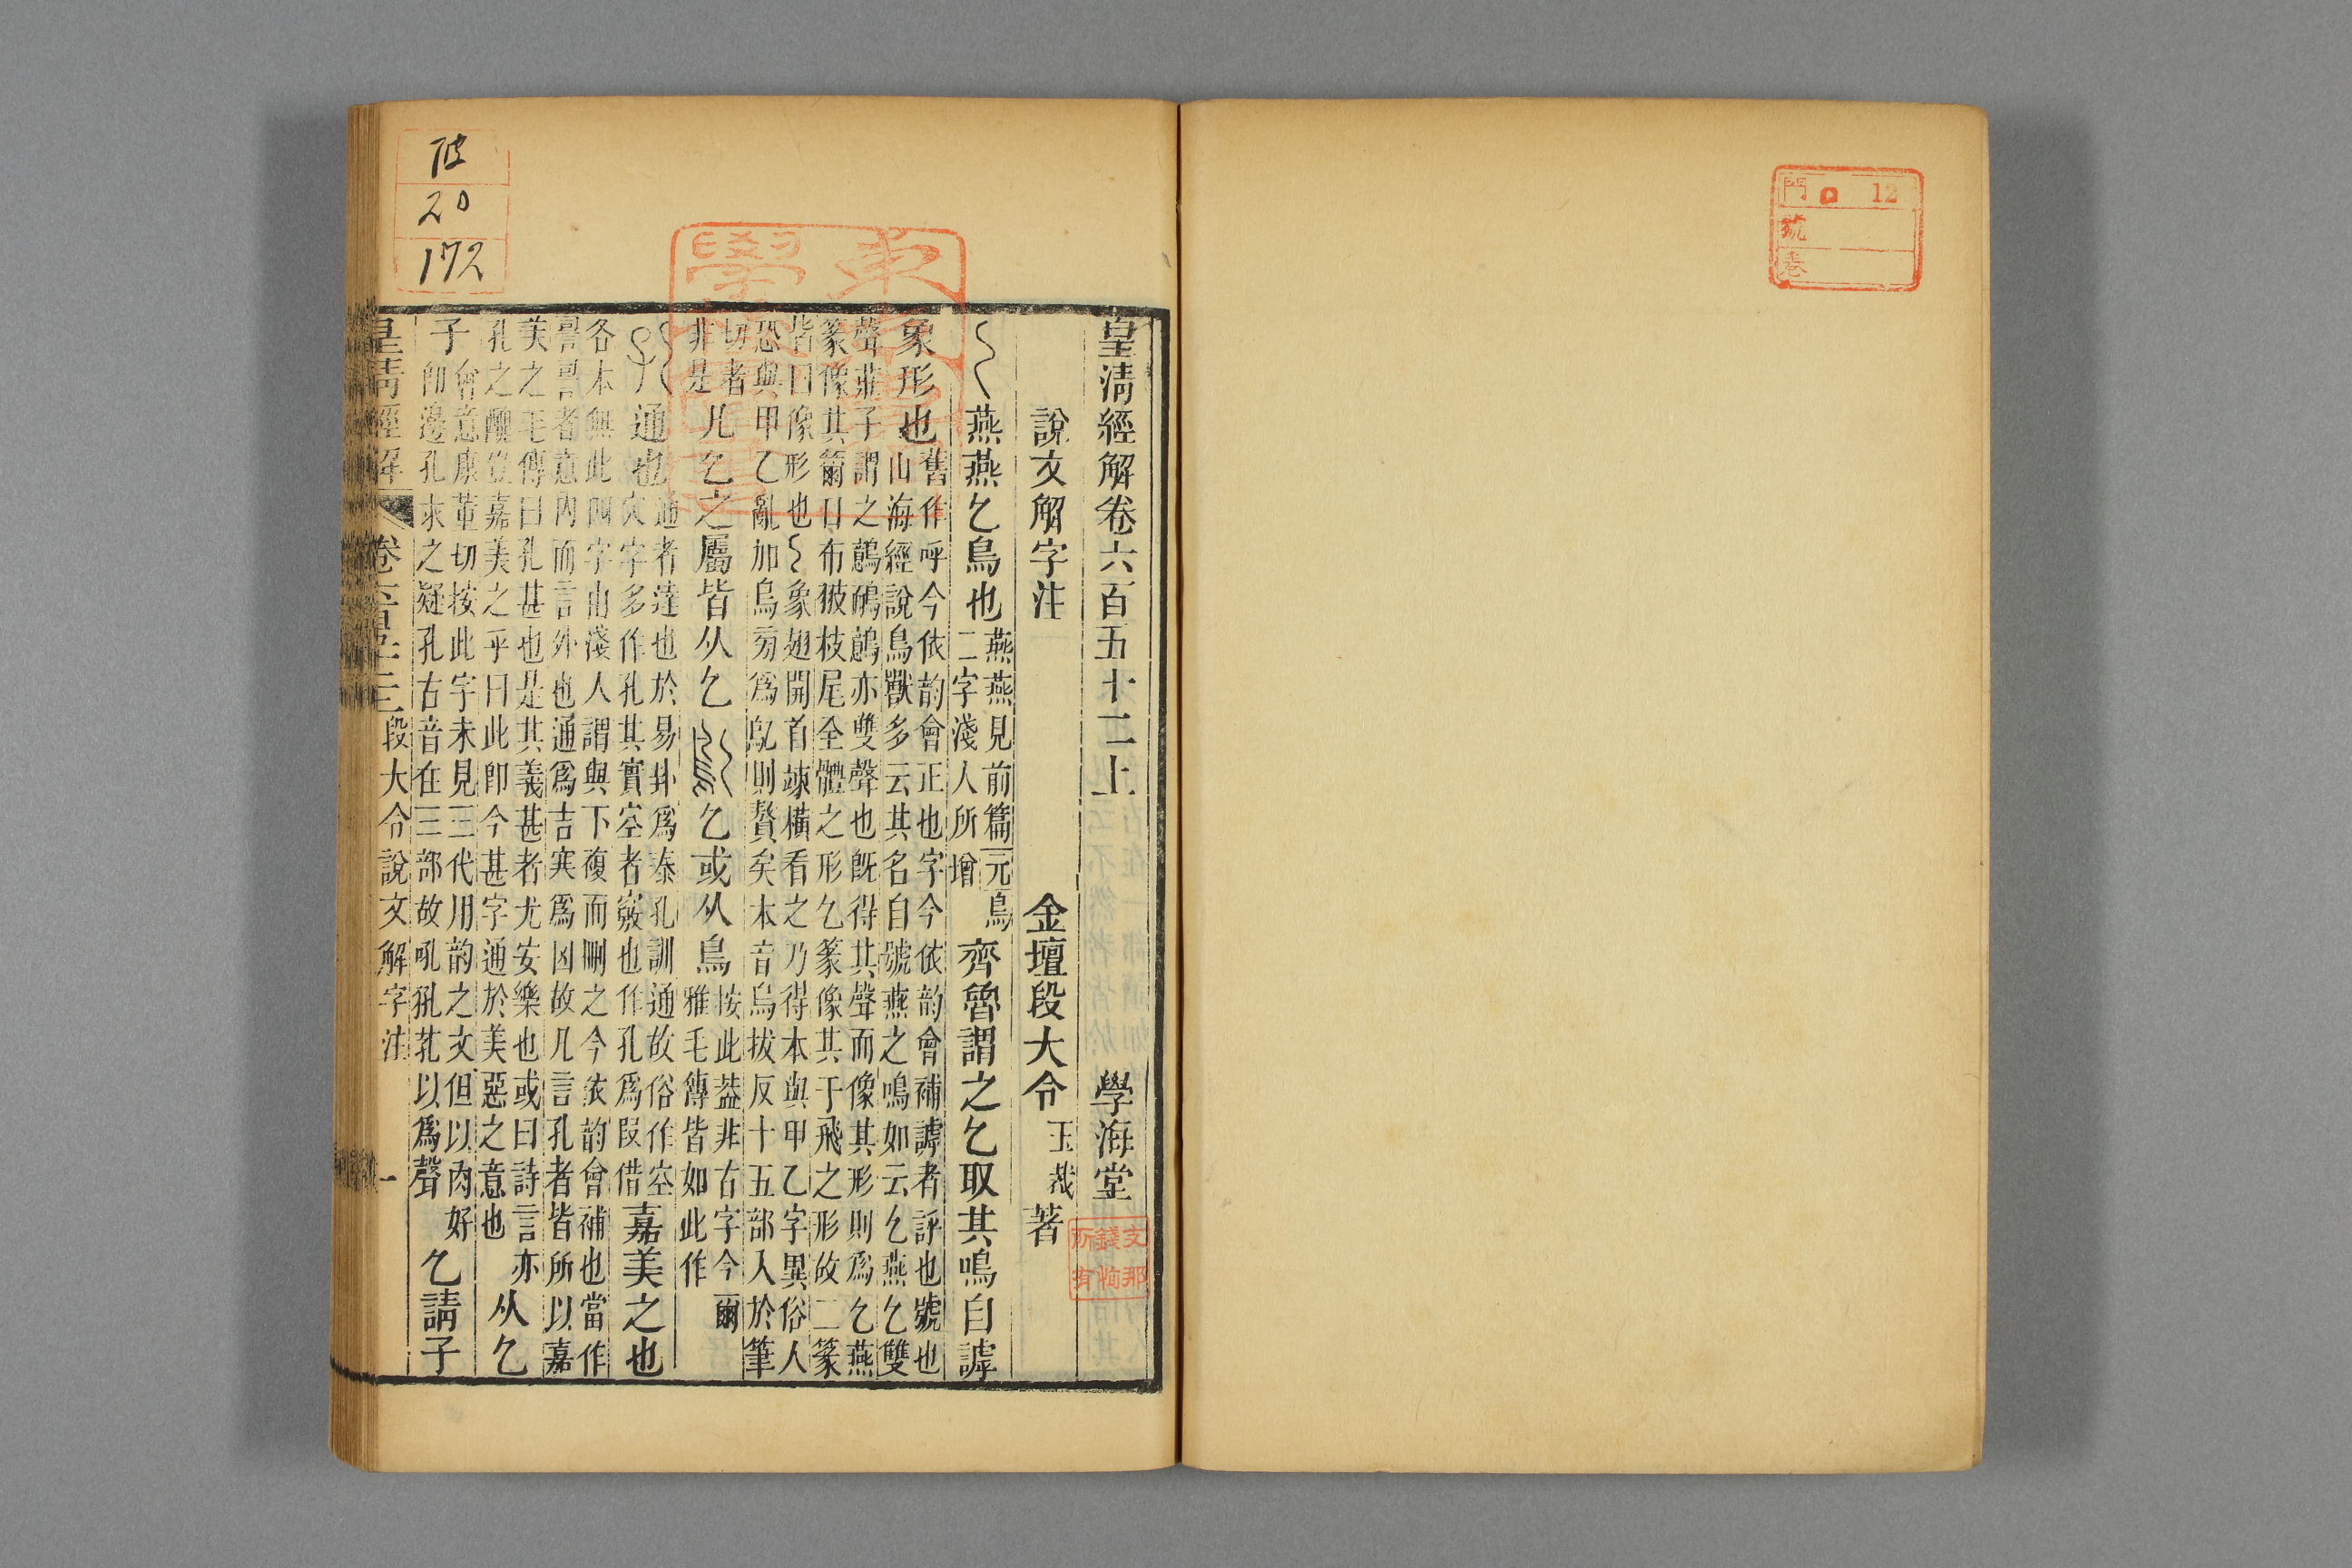 門 12
號
卷
皇清經解卷六百五十二上 學海堂
支那錢恂所有
說文解字注 金壇段大令玉裁著
燕燕乞鳥也
燕燕見前篇元鳥
二字淺人所增
齊魯謂之乞取其鳴自謼
象形也
舊作呼今依韵會正也字今依韵會補謼者評也號也
山海經說鳥獸多云其名自號燕之鳴如云乞燕乞雙
聲莊子謂之鷾鴯鷾亦雙聲也旣得其聲而像其形則爲乞燕
篆像其籋口布翄枝尾全體之形乞篆像其于飛之形故二篆
皆曰像形也象翅開首竦橫看之乃得本與甲乙字異俗人
恐與甲乙亂加鳥㫄爲鳦則贅矣本音烏拔反十五部入於筆
切者
非是
凡乞之屬皆从乞
乞或从鳥
按此葢非古字今爾
雅毛傳皆如此作
通也
通者達也於易卦爲泰孔訓通故俗作空
穴字多作孔其實空者竅也作孔爲叚借
嘉美之也
各本無此四字由淺人謂與下複而刪之今依韵會補也當作
者意內而言外也通爲吉寒爲凶故凡言孔者皆所以嘉
美之毛傳曰孔甚也是其義甚者尤安樂也或曰詩言亦
孔之醜豈嘉美之乎曰此卽今甚字通於美惡之意也
从乞
子
會意康董切按此字未見三代用韵之文但以肉好
卽邊孔求之疑孔古音在三部故吼犼芤以爲聲
乞請子
皇清經解 卷六百五十二 段大令說文解字注 一
20
172